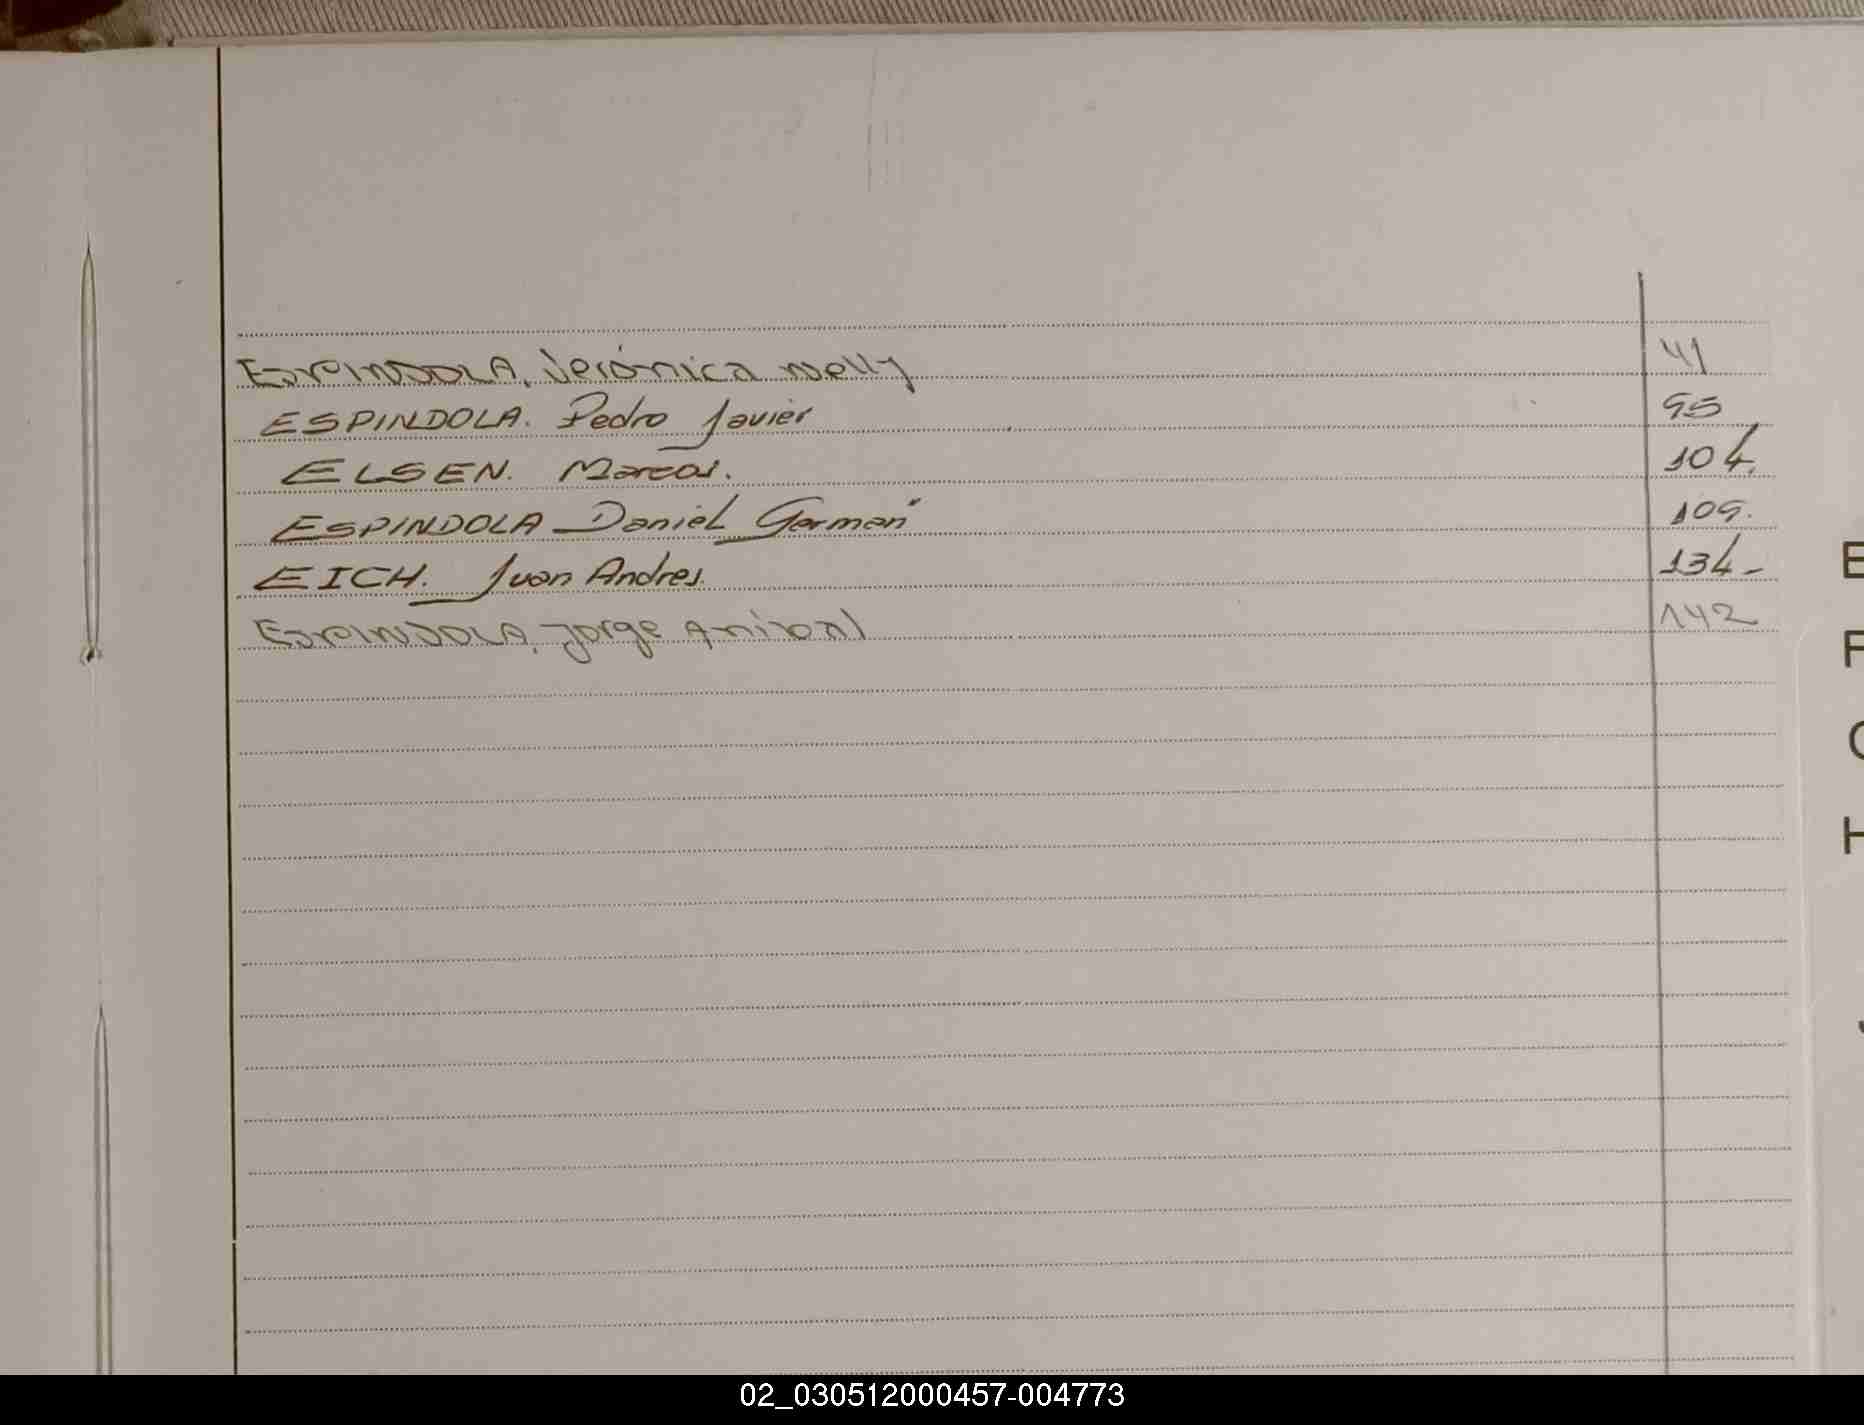 ESPINDOLA, Verónica Nelly 41
ESPINDOLA. Pedro Javier 95
ELSEN. Marcos. 104.
ESPINDOLA Daniel German 109.
EICH. Juan Andres. 134-
ESPINDOLA, Jorge Anibal 142
E
F
G
H
J
02_030512000457-004773